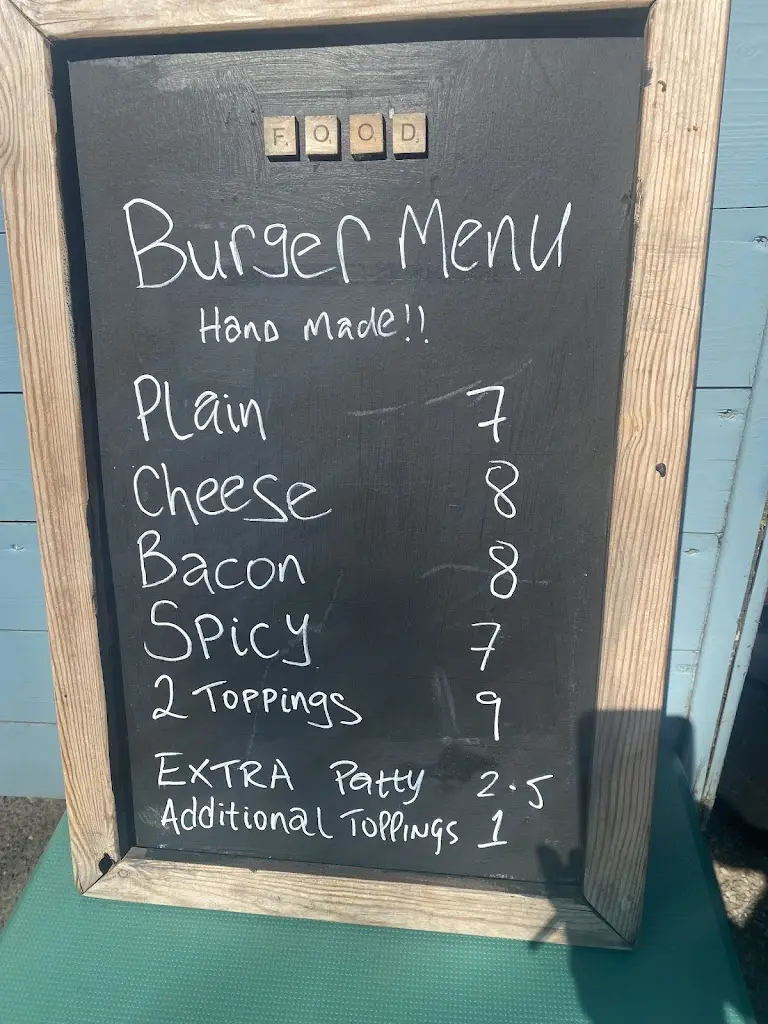 FOOD
Burger Menu
Hand Made!!
Plain 7
Cheese 8
Bacon 8
Spicy 7
2 Toppings 9
EXTRA Patty 2.5
Additional Toppings 1